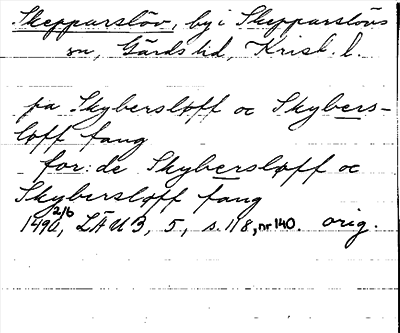 Skepparslöv, by i Skepparslövs
sn, Gärds hd, Krist. l.
pa Skybersloff oc Skybers-
loff fang
for: de Skybersløff oc
Skybersløff fang
1490 2/6, LÄUB, 5, s. 118, nr 140. orig.